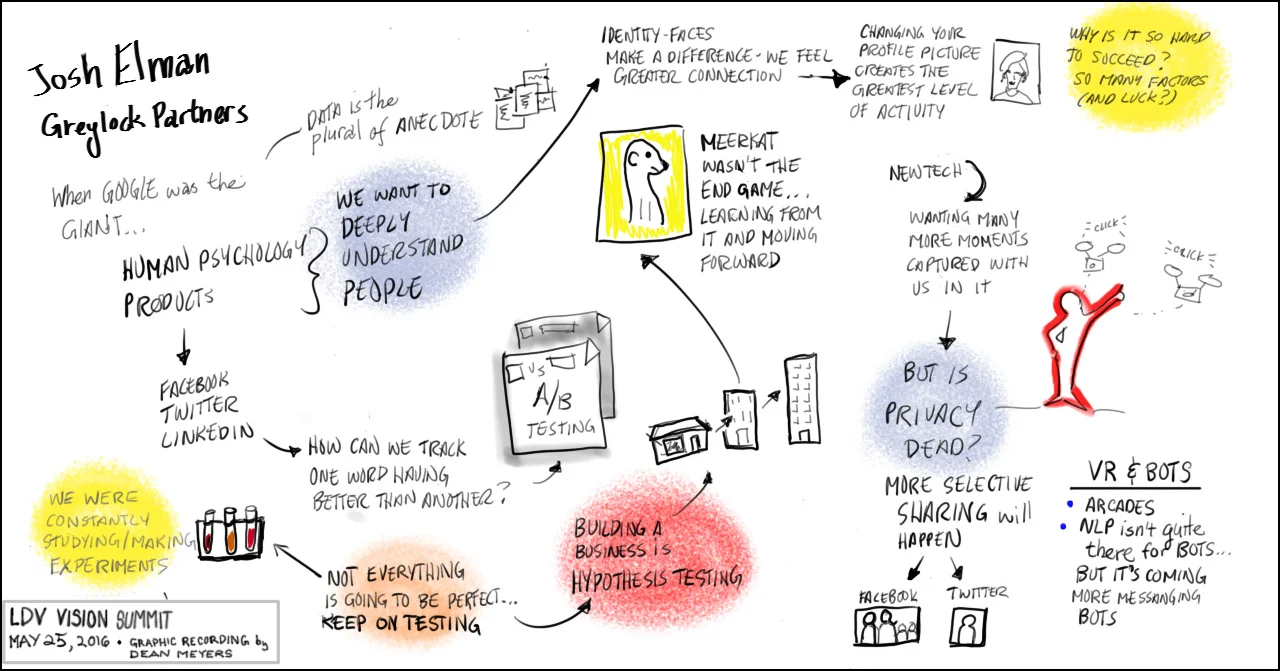 Josh Elman
Greylock Partners
DATA is the
plural of ANECDOTE
When GOOGLE was the
GIANT...
HUMAN PSYCHOLOGY
PRODUCTS
WE WANT TO
DEEPLY
UNDERSTAND
PEOPLE
FACEBOOK
TWITTER
LINKEDIN
HOW CAN WE TRACK
ONE WORD HAVING
BETTER THAN ANOTHER?
VS
A/B
TESTING
WE WERE
CONSTANTLY
STUDYING/MAKING
EXPERIMENTS
NOT EVERYTHING
IS GOING TO BE PERFECT...
KEEP ON TESTING
BUILDING A
BUSINESS IS
HYPOTHESIS TESTING
IDENTITY-FACES
MAKE A DIFFERENCE - WE FEEL
GREATER CONNECTION
CHANGING YOUR
PROFILE PICTURE
CREATES THE
GREATEST LEVEL
OF ACTIVITY
WHY IS IT SO HARD
TO SUCCEED?
SO MANY FACTORS
(AND LUCK?)
MEERKAT
WASN'T THE
END GAME...
LEARNING FROM
IT AND MOVING
FORWARD
NEW TECH
WANTING MANY
MORE MOMENTS
CAPTURED WITH
US IN IT
CLICK
CLICK
BUT IS
PRIVACY
DEAD?
MORE SELECTIVE
SHARING will
HAPPEN
FACEBOOK
TWITTER
VR & BOTS
• ARCADES
• NLP isn't quite
there for BOTS...
BUT IT'S COMING
MORE MESSANGING
BOTS
LDV VISION SUMMIT
MAY 25, 2016 • GRAPHIC RECORDING by
DEAN MEYERS